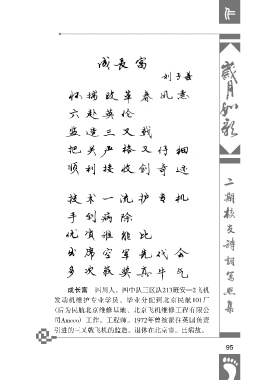 成长富
刘子善
怀揣改革春风意
六赴英伦
监造三叉戟
把关严格又仔细
顺利接收创奇迹
技术一流护专机
手到病除
优质谁能比
出席空军先代会
多次获奖真牛气
成长富 四川人，四中队三区队213班安—2飞机
发动机维护专业学员。毕业分配到北京民航101厂
(后为民航北京维修基地、北京飞机维修工程有限公
司Ameco）工作。工程师。1972年曾被派往英国负责
引进的三叉戟飞机的监造。退休在北京市。已病故。
岁月如歌
二期校友诗词写照集
95